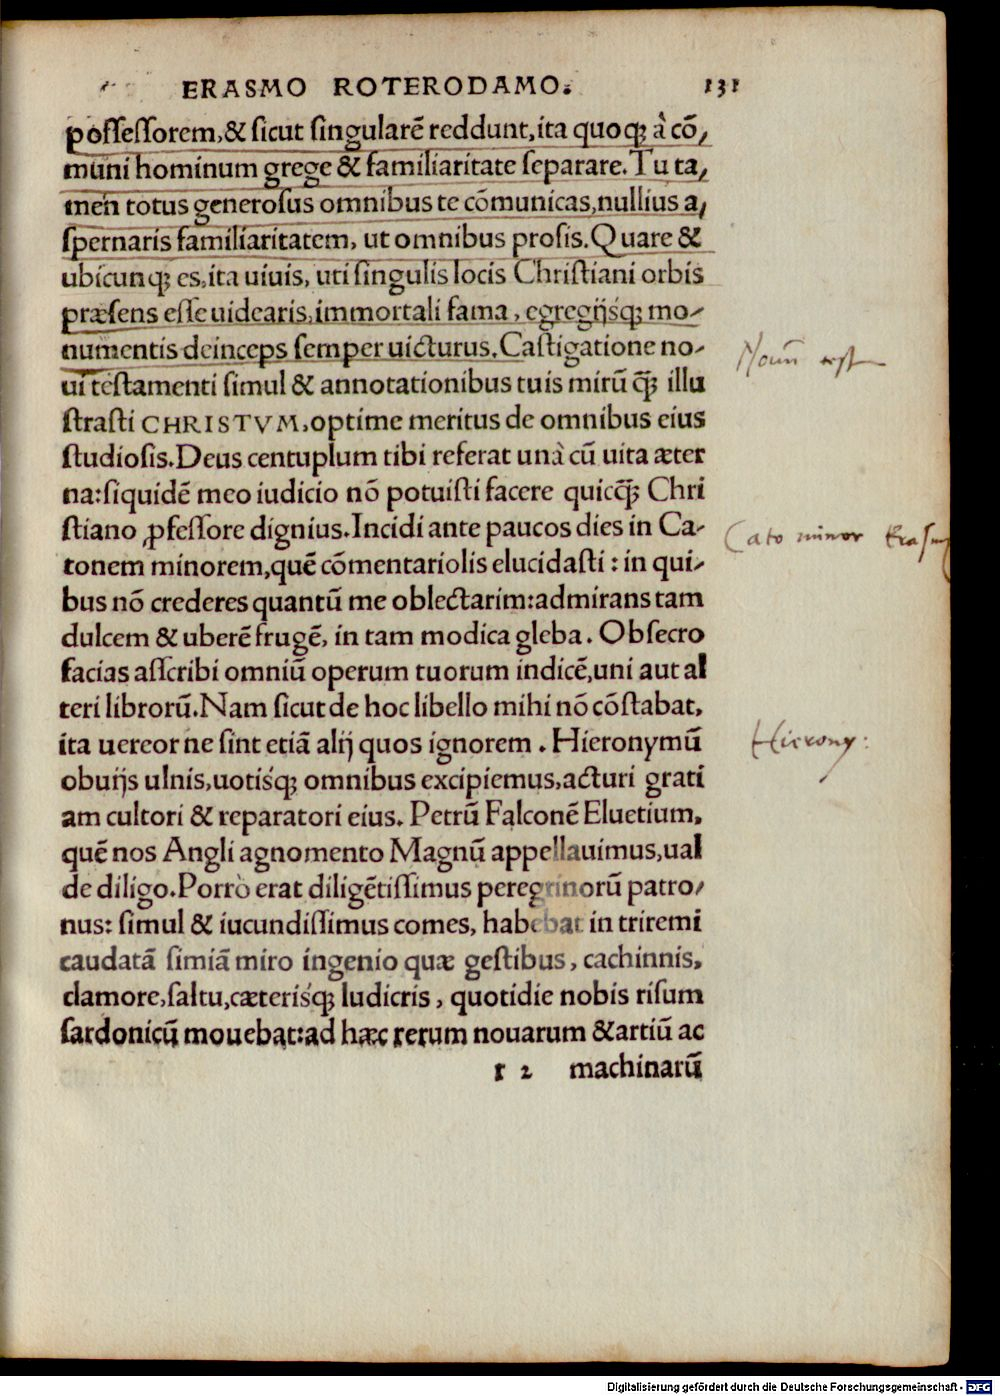 ERASMO ROTERODAMO. 131
possessorem,& sicut singularē reddunt,ita quoqꝫ à cō⸗
muni hominum grege & familiaritate separare.Tu ta⸗
men totus generosus omnibus te cōmunicas,nullius a⸗
spernaris familiaritatem, ut omnibus prosis.Quare &
ubicunqꝫ es,ita uiuis, uti singulis locis Christiani orbis
præsens esse uidearis,immortali fama, egregijsqꝫ mo⸗
numentis deinceps semper uicturus.Castigatione no⸗
ui testamenti simul & annotationibus tuis mirū q̄ꝫ illu
strasti CHRISTVM,optime meritus de omnibus eius
studiosis.Deus centuplum tibi referat unà cū uita æter
na:siquidē meo iudicio nō potuisti facere quicq̄ꝫ Chri
stiano ꝓfessore dignius.Incidi ante paucos dies in Ca⸗
tonem minorem,quē cōmentariolis elucidasti : in qui⸗
bus nō crederes quantū me oblectarim:admirans tam
dulcem & uberē frugē, in tam modica gleba. Obsecro
facias asscribi omniū operum tuorum indicē,uni aut al
teri librorū.Nam sicut de hoc libello mihi nō cōstabat,
ita uereor ne sint etiā alij quos ignorem . Hieronymū
obuijs ulnis,uotisqꝫ omnibus excipiemus,acturi grati
am cultori & reparatori eius. Petrū Falconē Eluetium,
quē nos Angli agnomento Magnū appellauimus,ual
de diligo.Porrò erat diligētissimus peregrinorū patro⸗
nus: simul & iucundissimus comes, habebat in triremi
caudatā simiā miro ingenio quæ gestibus, cachinnis,
clamore,saltu,cæterisqꝫ ludicris, quotidie nobis risum
sardonicū mouebat:ad hæc rerum nouarum &artiū ac
r 2 machinarū
Nouū test
Cato minor Erasmi
Hierony:
Digitalisierung gefördert durch die Deutsche Forschungsgemeinschaft - DFG